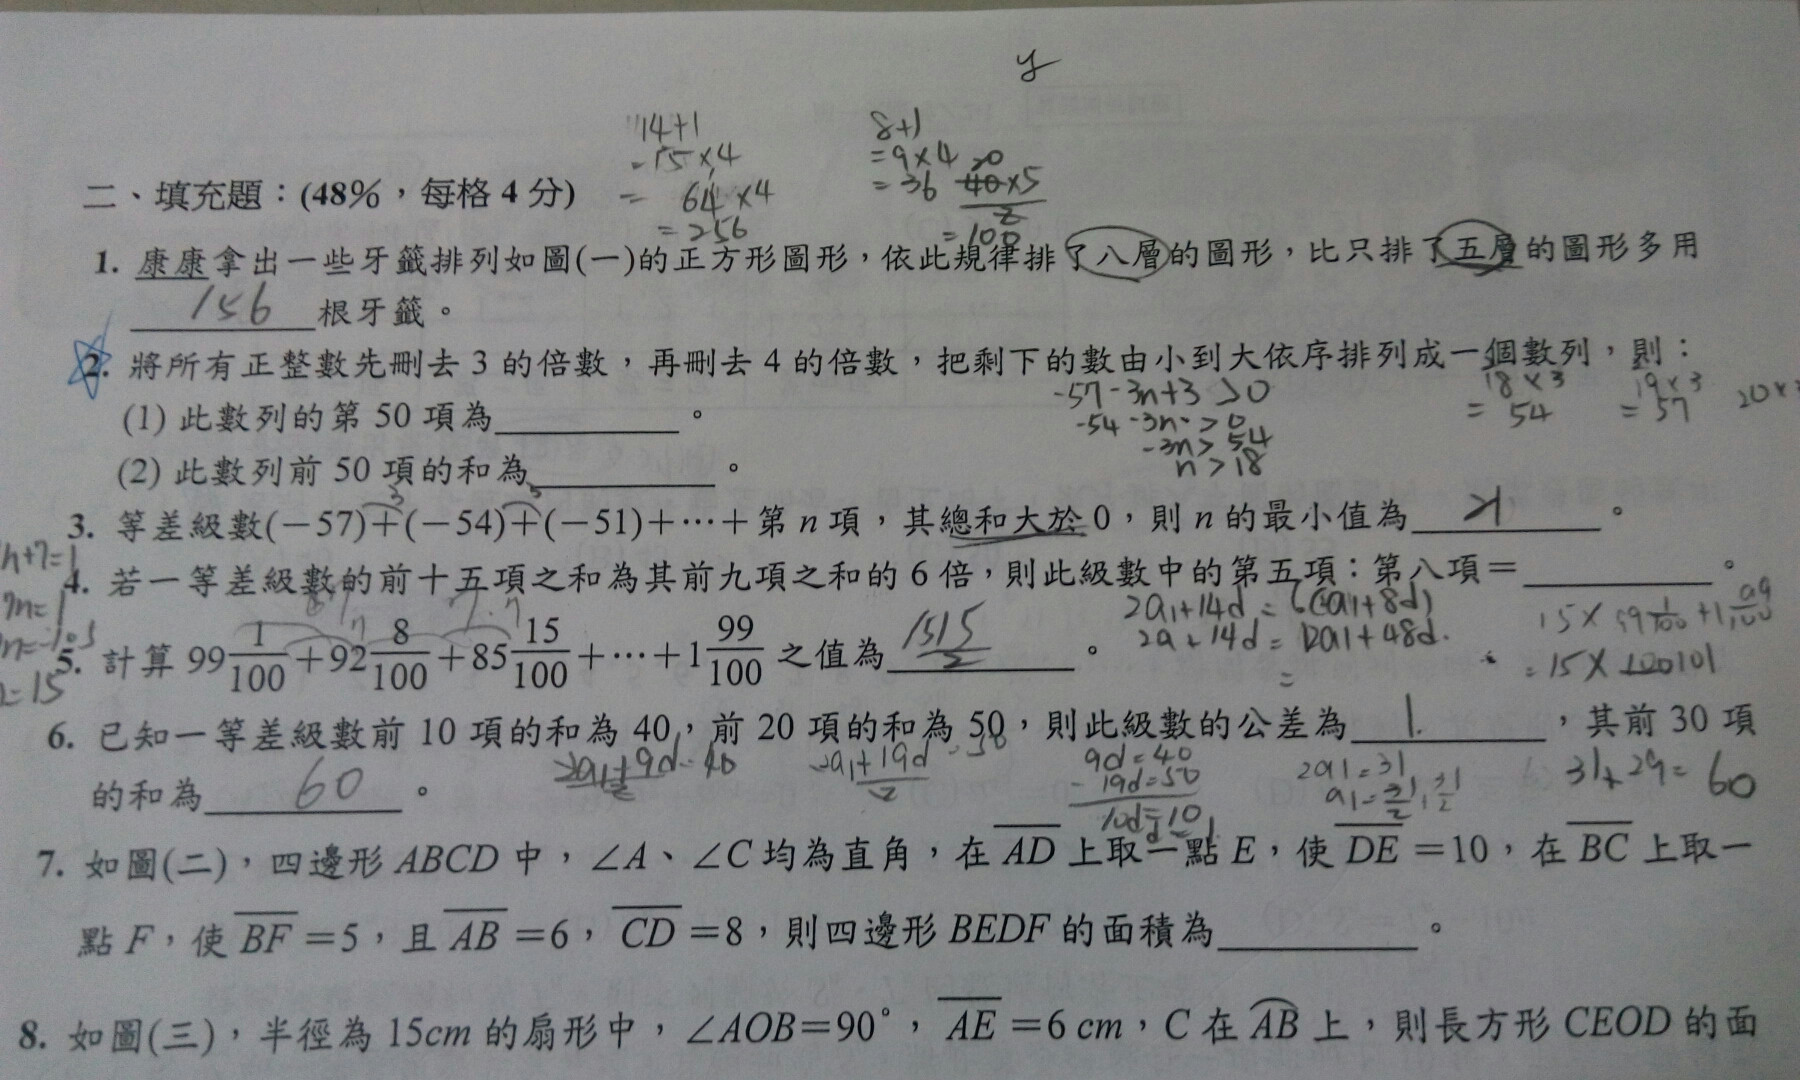 y
14+1
=15×4
= 64×4
=256
8+1
=9×4
=36
20
40×5
2
=100
二、填充題：(48%，每格 4 分)
1. 康康拿出一些牙籤排列如圖(一)的正方形圖形，依此規律排了八層的圖形，比只排了五層的圖形多用
156 根牙籤。
2. 將所有正整數先刪去 3 的倍數，再刪去 4 的倍數，把剩下的數由小到大依序排列成一個數列，則：
-57-3n+3>0
-54-3n>0
-3n>54
n>18
18×3
=54
19×3
=57
(1) 此數列的第 50 項為____。
(2) 此數列前 50 項的和為____。
3 3
3. 等差級數(−57)+(−54)+(−51)+⋯+第 n 項，其總和大於 0，則 n 的最小值為____。
4. 若一等差級數的前十五項之和為其前九項之和的 6 倍，則此級數中的第五項：第八項=____。
2a1+14d=6(2a1+8d)
2a+14d=12a1+48d
5. 計算 99 1/100 + 92 8/100 + 85 15/100 +⋯+1 99/100 之值為 1515/2 。
=15×100101
6. 已知一等差級數前 10 項的和為 40，前 20 項的和為 50，則此級數的公差為 1. ，其前 30 項
的和為 60 。
2a1+19d=50
2
9d=40
-19d=50
10d=10
2a1=31
31+29=60
7. 如圖(二)，四邊形 ABCD 中，∠A、∠C 均為直角，在 AD 上取一點 E，使 DE =10，在 BC 上取一
點 F，使 BF =5，且 AB =6，CD =8，則四邊形 BEDF 的面積為____。
8. 如圖(三)，半徑為 15cm 的扇形中，∠AOB=90°，AE =6 cm，C 在 AB 上，則長方形 CEOD 的面